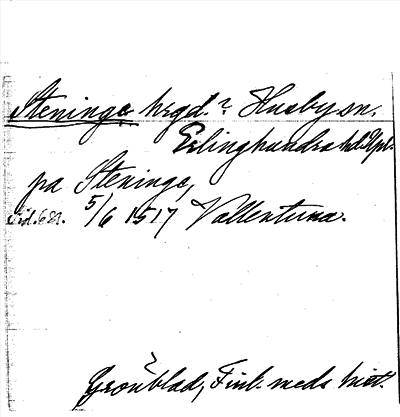 Steninge hrgd.? Husby sn.
Erlinghundra hd. Upl.
pa Steninge,
5/6 1517 Vallentuna.
Grönblad, Finl. meds hist.